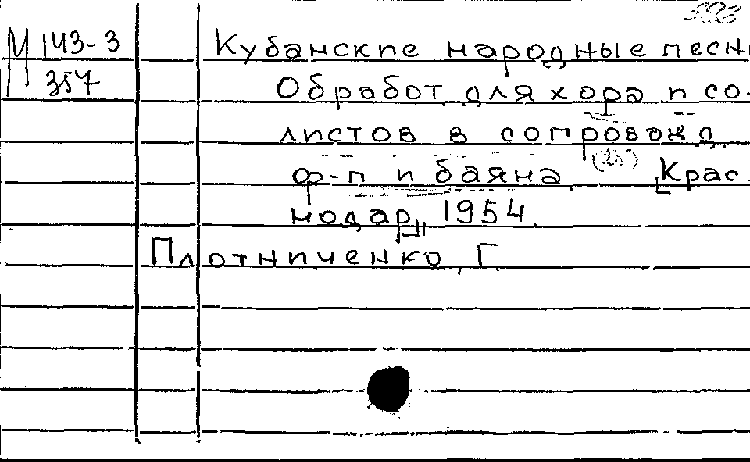 М 143-3
357
Кубанские народные песни
Обработ для хора и со-
листов в сопровожд.
ф-п и баяна Крас
нодар, 1954.
Плотниченко, Г.